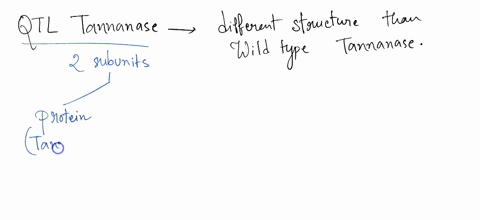 QTL Tannanase → different structure than
Wild type Tannanase.
2 subunits
protein
(Tan